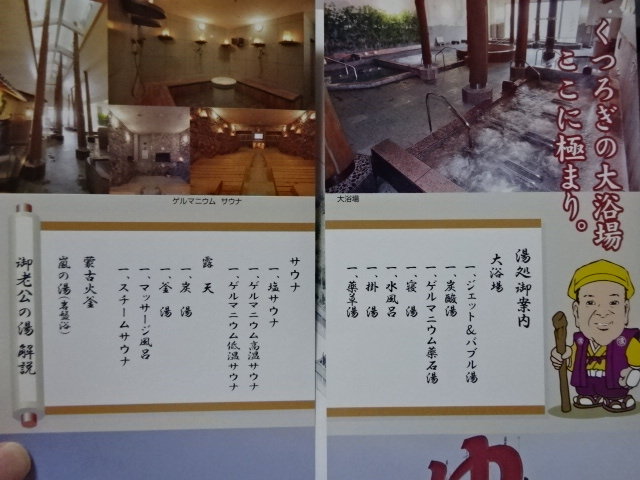 くつろぎの大浴場
ここに極まり。
大浴場
湯処御案内
大浴場
一、ジェット＆バブル湯
一、炭酸湯
一、ゲルマニウム薬石湯
一、寝湯
一、水風呂
一、掛湯
一、薬草湯
ゲルマニウム サウナ
サウナ
一、塩サウナ
一、ゲルマニウム高温サウナ
一、ゲルマニウム低温サウナ
露天
一、炭湯
一、釜湯
一、マッサージ風呂
一、スチームサウナ
蒙古火釜
嵐の湯(岩盤浴)
御老公の湯 解説
ゆ